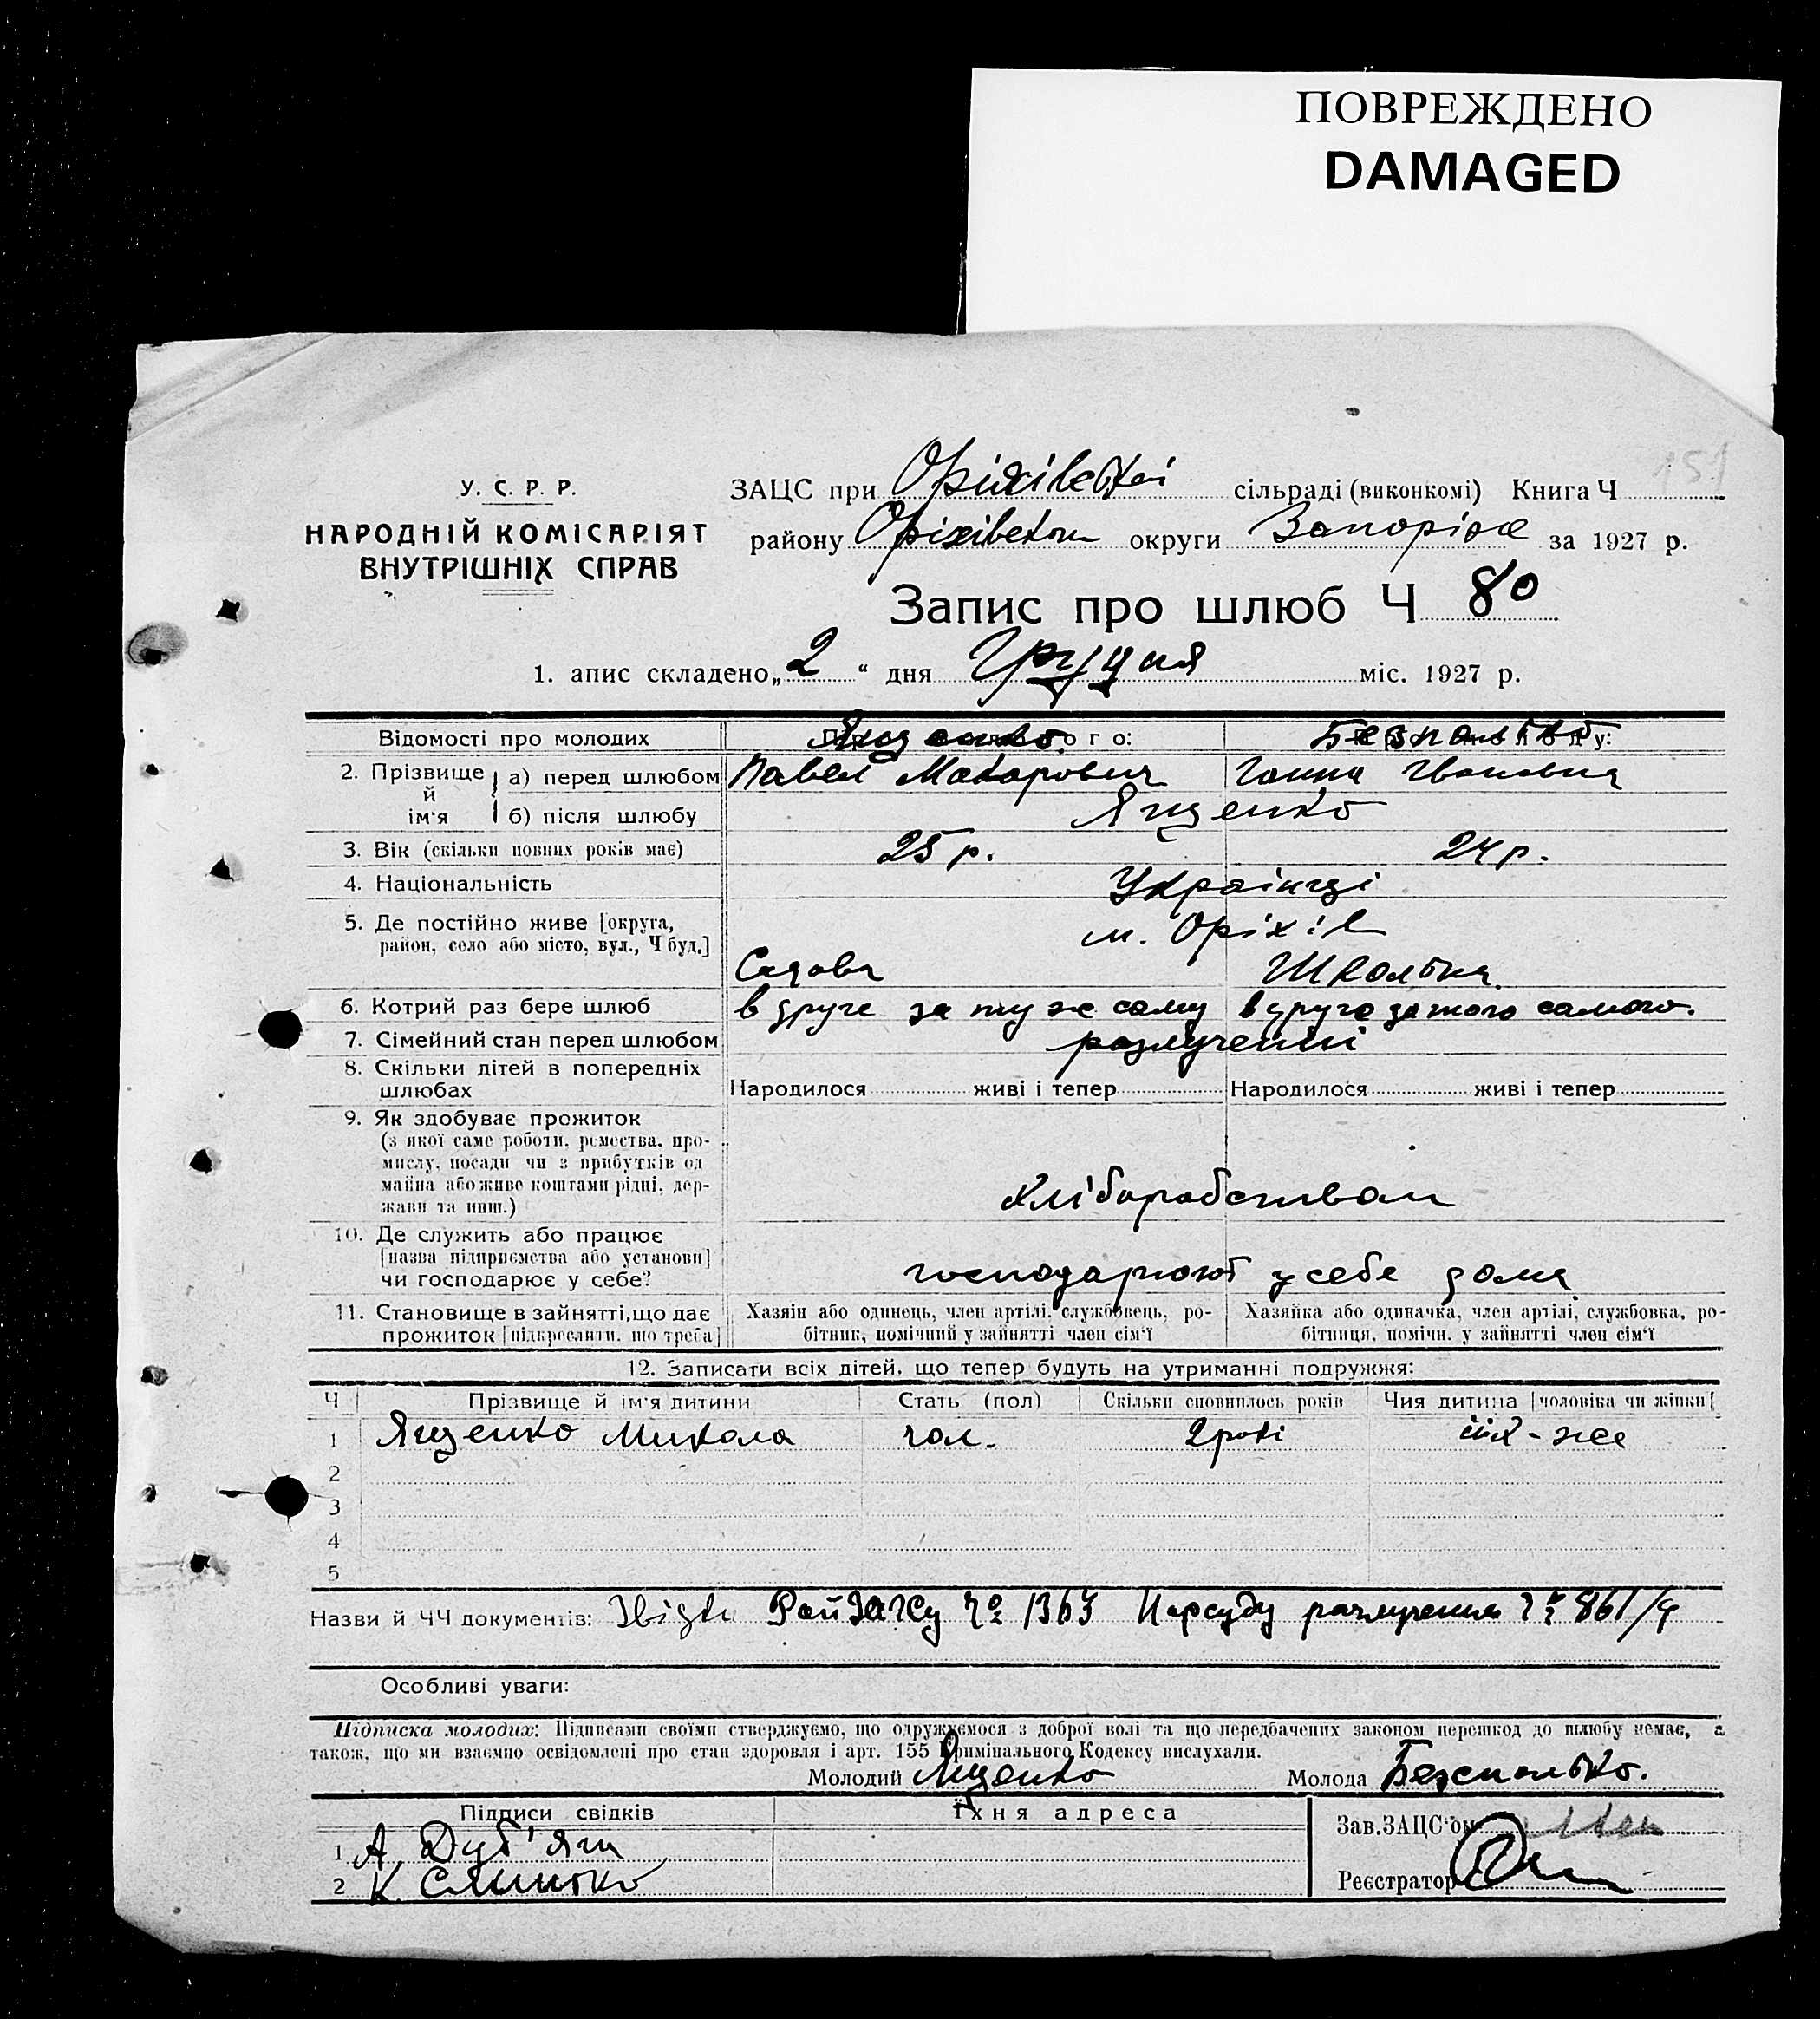 ПОВРЕЖДЕНО
DAMAGED
151
У. С. Р. Р.
НАРОДНІЙ КОМІСАРІЯТ
ВНУТРІШНІХ СПРАВ
ЗАЦС при Оріхівській сільраді (виконкомі) Книга Ч
району Оріхівськ округи Запоріж за 1927 р.
Запис про шлюб Ч 80
1. апис складено „2“ дня Грудня міс. 1927 р.
Відомості про молодих Ященко ого: Безпалько у:
2. Прізвище й ім'я а) перед шлюбом Павел Макарович Ганна Івановна
б) після шлюбу Ященко
3. Вік (скільки повних років має) 25 р. 24 р.
4. Національність Українці
5. Де постійно живе [округа, район, село або місто, вул., Ч буд.] м. Оріхів
Садова Шкільна
6. Котрий раз бере шлюб вдруге за ту же саму вдруге за того самого.
7. Сімейний стан перед шлюбом розлученні
8. Скільки дітей в попередніх шлюбах Народилося живі і тепер Народилося живі і тепер
9. Як здобуває прожиток
(з якої саме роботи, ремества, про-
мислу, посади чи з прибутків од
майна або живе коштами рідні, дер-
жави та инш.) Хліборобством
10. Де служить або працює
[назва підприємства або установи]
чи господарює у себе? господарюют у себе дома
11. Становище в зайнятті, що дає прожиток [підкреслити, що треба] Хазяін або одинець, член артілі, службовець, ро-
бітник, помічний у зайнятті член сім'ї Хазяйка або одиначка, член артілі, службовка, ро-
бітниця, помічн. у зайнятті член сім'ї
12. Записати всіх дітей, що тепер будуть на утриманні подружжя:
Ч Прізвище й ім'я дитини Стать (пол) Скільки сповнилось років Чия дитина [чоловіка чи жінки[
1 Ященко Микола чол. 2 роки їіх-же
2
3
4
5
Назви й ЧЧ документів: РайЗАГСу Ч⁰ Нарсуду розлучення 861/ч
Особливі уваги:
Підписка молодих: Підписами своїми стверджуємо, що одружуємося з доброї волі та що передбачених законом перешкод до шлюбу немає, а
також, що ми взаємно освідомлені про стан здоровля і арт. 155 Кримінального Кодексу вислухали.
Молодий Ященко Молода Безпалько.
Підписи свідків Їхня адреса
Зав. ЗАЦС'ом
1 А. Дуб'яга
2 К.
Реєстратор